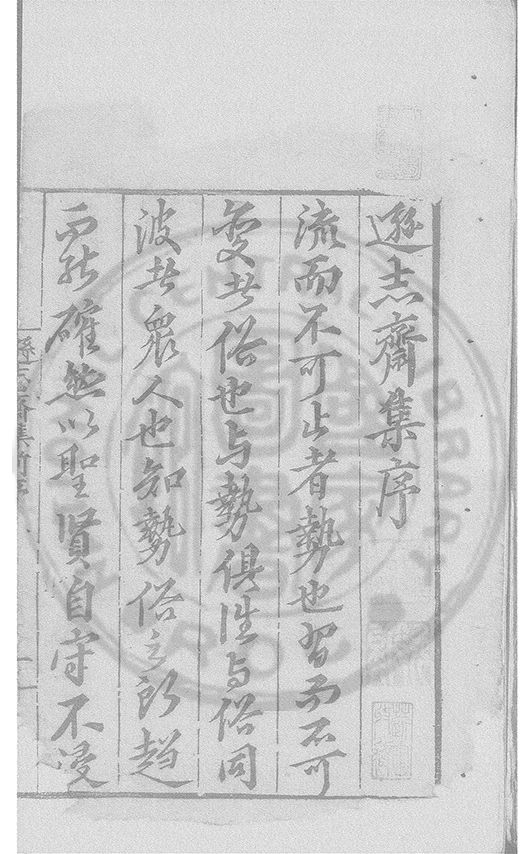 遜志齋集序
流而不可止者勢也習而不可
變者俗也与勢俱往与俗同
波者衆人也知勢俗之所趨
而能確然以聖賢自守不浸
遜志齋集前序